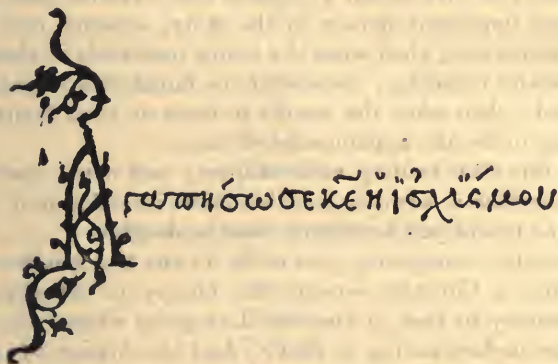 Αγαπήσω σε κε̅ ἡ ϊσχύς μου